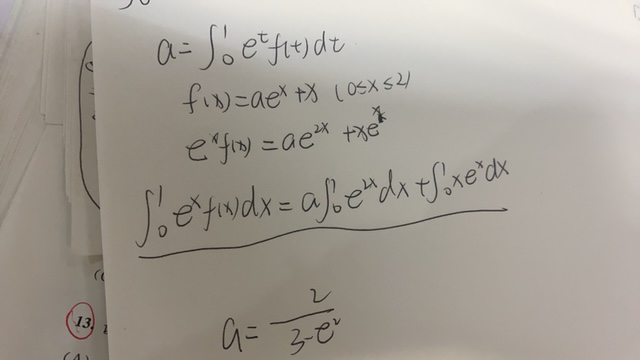 a=∫₀¹ eᵗf(t)dt
f(x)=aeˣ+x (0≤x≤2)
eˣf(x)=ae²ˣ+xeˣ
∫₀¹ eˣf(x)dx=a∫₀¹e²ˣdx+∫₀¹xeˣdx
13.
a=2/(3-e²)